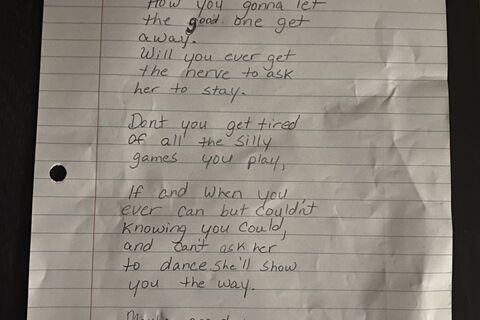 How you gonna let
the good one get
away.
Will you ever get
the nerve to ask
her to stay.
Dont you get tired
of all the silly
games you play,
If and when you
ever can but couldn't
knowing you could,
and can't ask her
to dance she'll show
you the way.